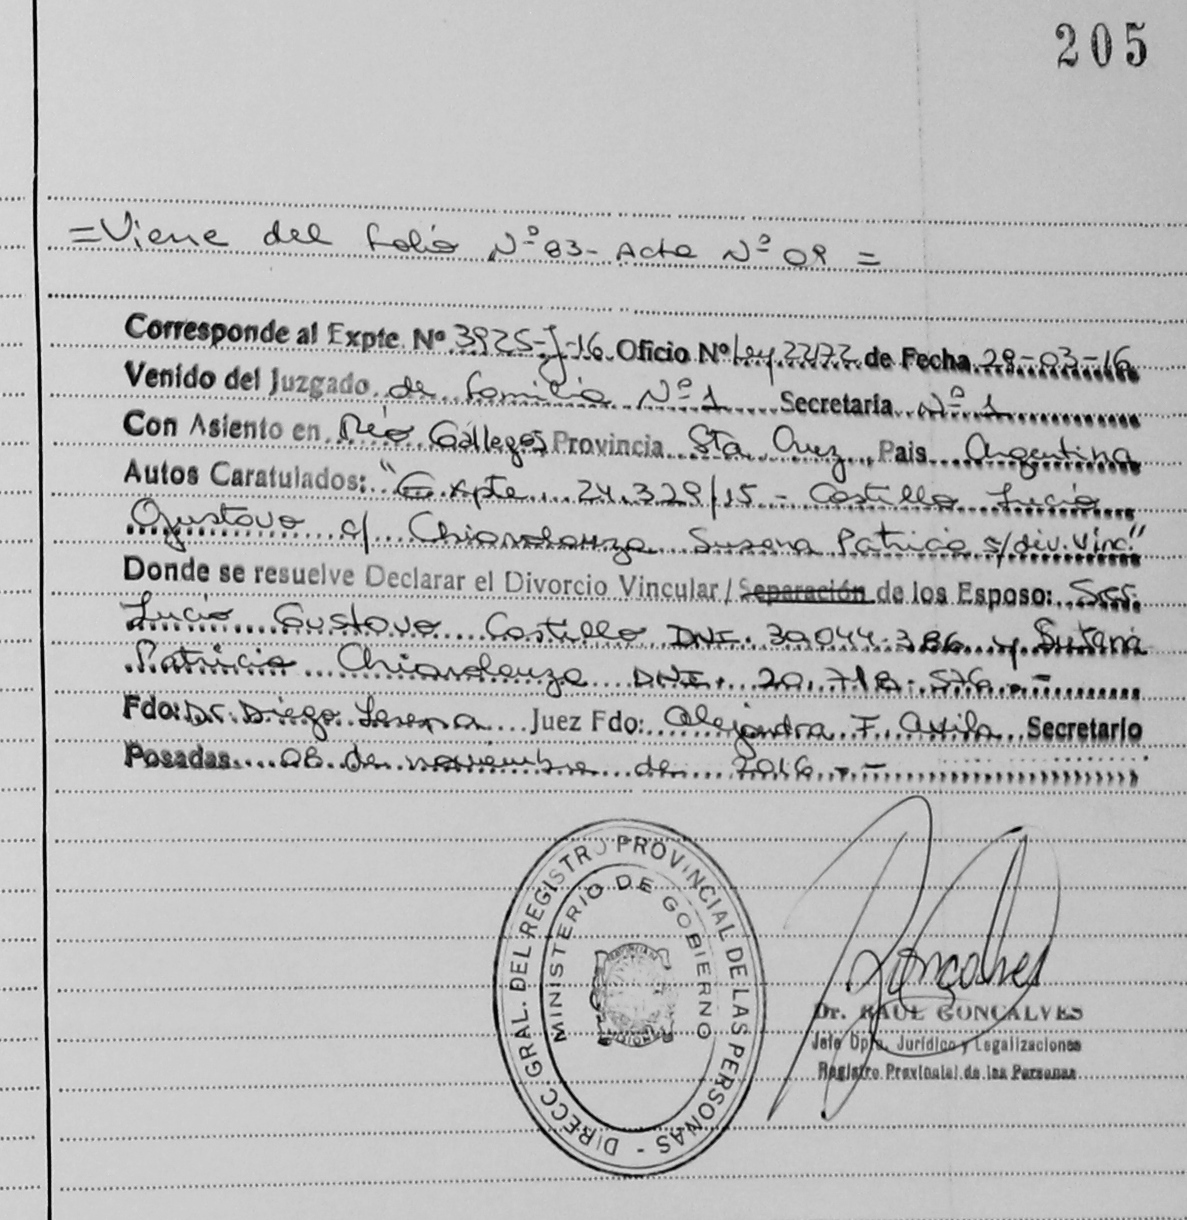 205
=Viene del folio Nº 83- Acta Nº 09 =
Corresponde al Expte. Nº 3925-J-16. Oficio Nº Ley 22172 de Fecha 29-03-16
Venido del Juzgado de familia Nº 1 Secretaria Nº 1
Con Asiento en Río Gallegos Provincia Sta Cruz, Pais Argentina
Autos Caratulados: "Expte. 24.329/15 - Castillo Lucio
Gustavo c/ Chiaralanza Susana Patricia s/div. Vinc."
Donde se resuelve Declarar el Divorcio Vincular / Separación de los Esposo: Sres.
Lucio Gustavo Castillo DNI. 30.044.386 y Susana
Patricia Chiaralanza DNI. 20.718.576.-
Fdo: Dr. Diego Lerena Juez Fdo: Alejandra F. Avila Secretario
Posadas 08 de noviembre de 2016.-
DIRECC. GRAL. DEL REGISTRO PROVINCIAL DE LAS PERSONAS -
MINISTERIO DE GOBIERNO
Goncalves
Dr. RAUL GONCALVES
Jefe Dpto. Jurídico y Legalizaciones
Registro Provincial de las Personas